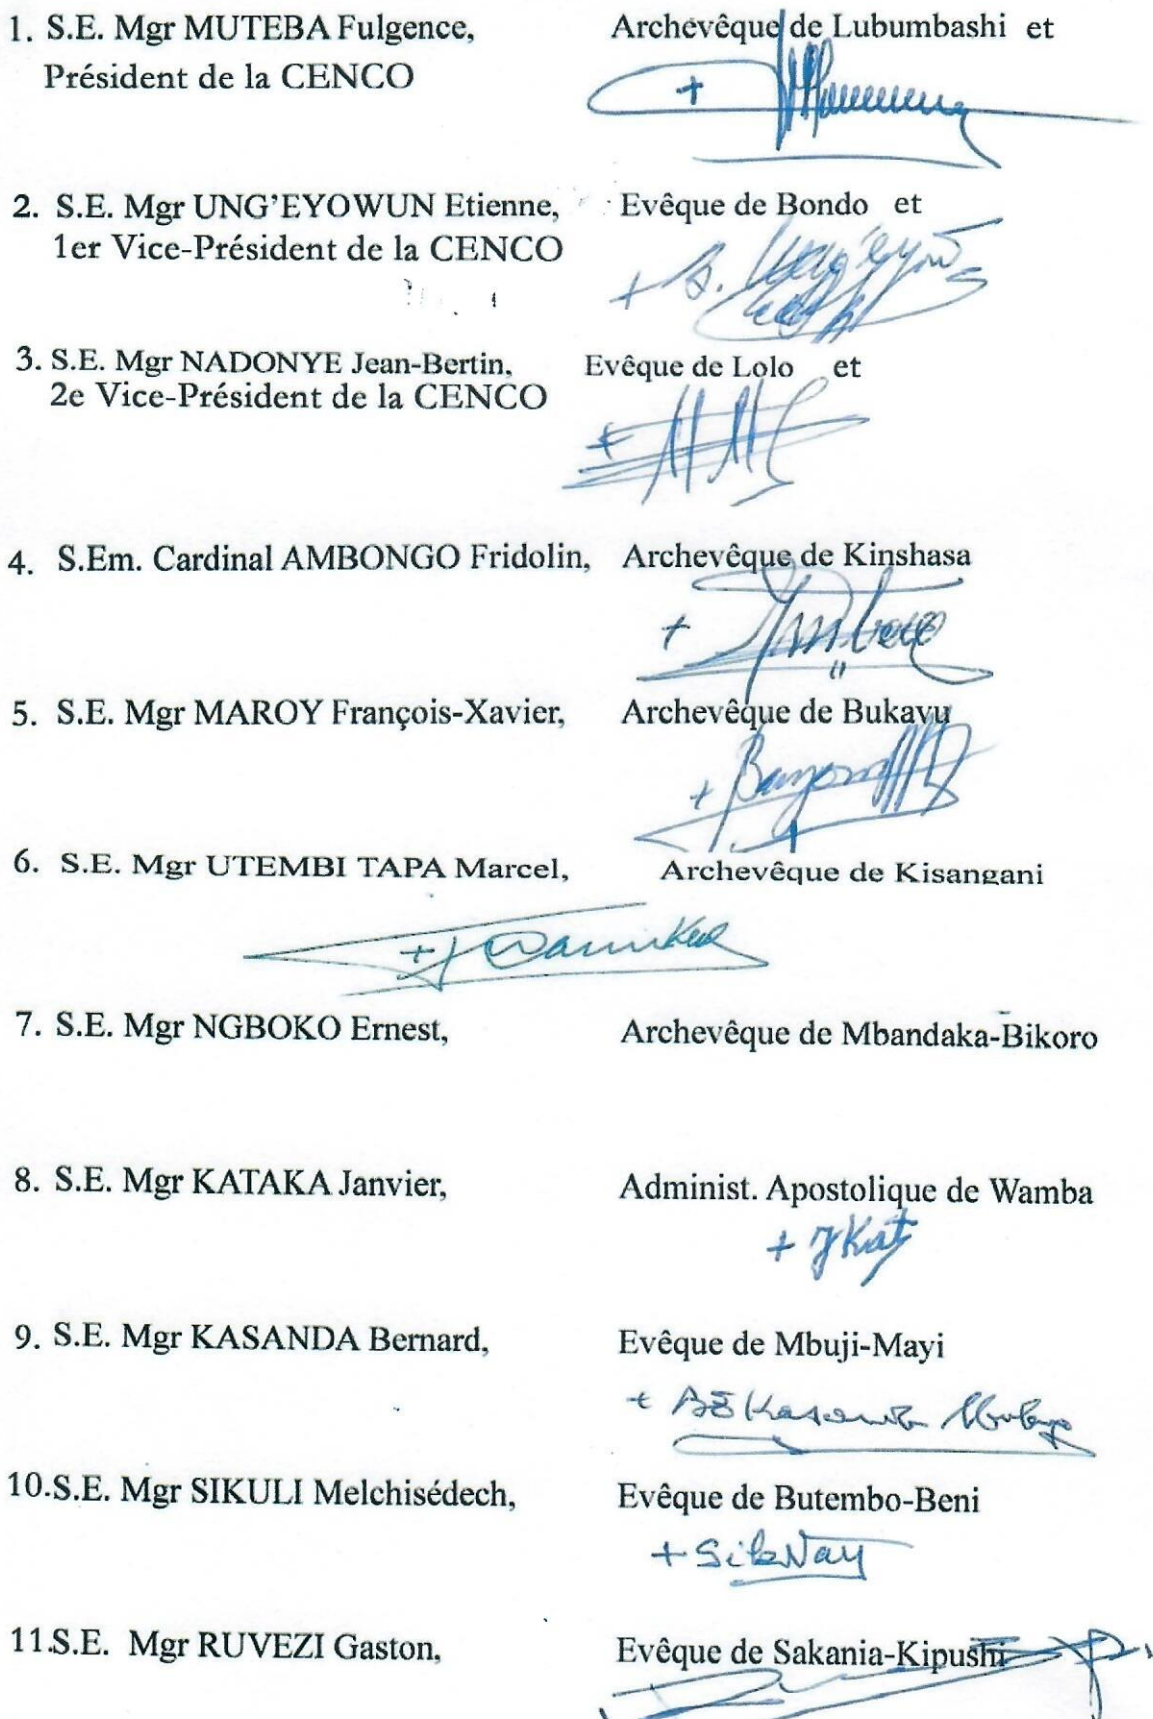 1. S.E. Mgr MUTEBA Fulgence, Archevêque de Lubumbashi et
Président de la CENCO
+
2. S.E. Mgr UNG'EYOWUN Etienne, Evêque de Bondo et
1er Vice-Président de la CENCO
+
3. S.E. Mgr NADONYE Jean-Bertin, Evêque de Lolo et
2e Vice-Président de la CENCO
+
4. S.Em. Cardinal AMBONGO Fridolin, Archevêque de Kinshasa
+
5. S.E. Mgr MAROY François-Xavier, Archevêque de Bukavu
+
6. S.E. Mgr UTEMBI TAPA Marcel, Archevêque de Kisangani
+
7. S.E. Mgr NGBOKO Ernest, Archevêque de Mbandaka-Bikoro
8. S.E. Mgr KATAKA Janvier, Administ. Apostolique de Wamba
+ JKat
9. S.E. Mgr KASANDA Bernard, Evêque de Mbuji-Mayi
+
10.S.E. Mgr SIKULI Melchisédech, Evêque de Butembo-Beni
+
11.S.E. Mgr RUVEZI Gaston, Evêque de Sakania-Kipushi